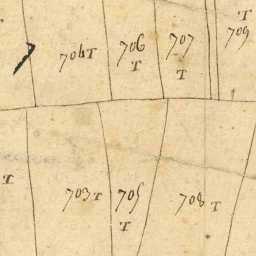 704 T
706 T
707 T
T 709
T
703 T
705 T
708 T